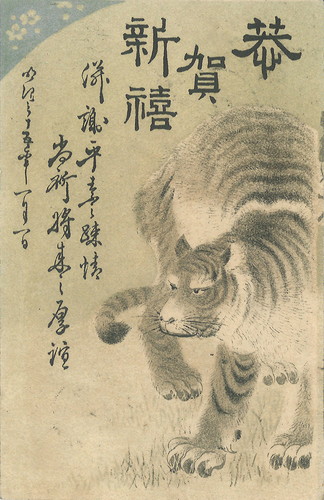 恭賀新禧
併謝平素之疎情
尚祈將来之厚誼
明治三十五年一月一日